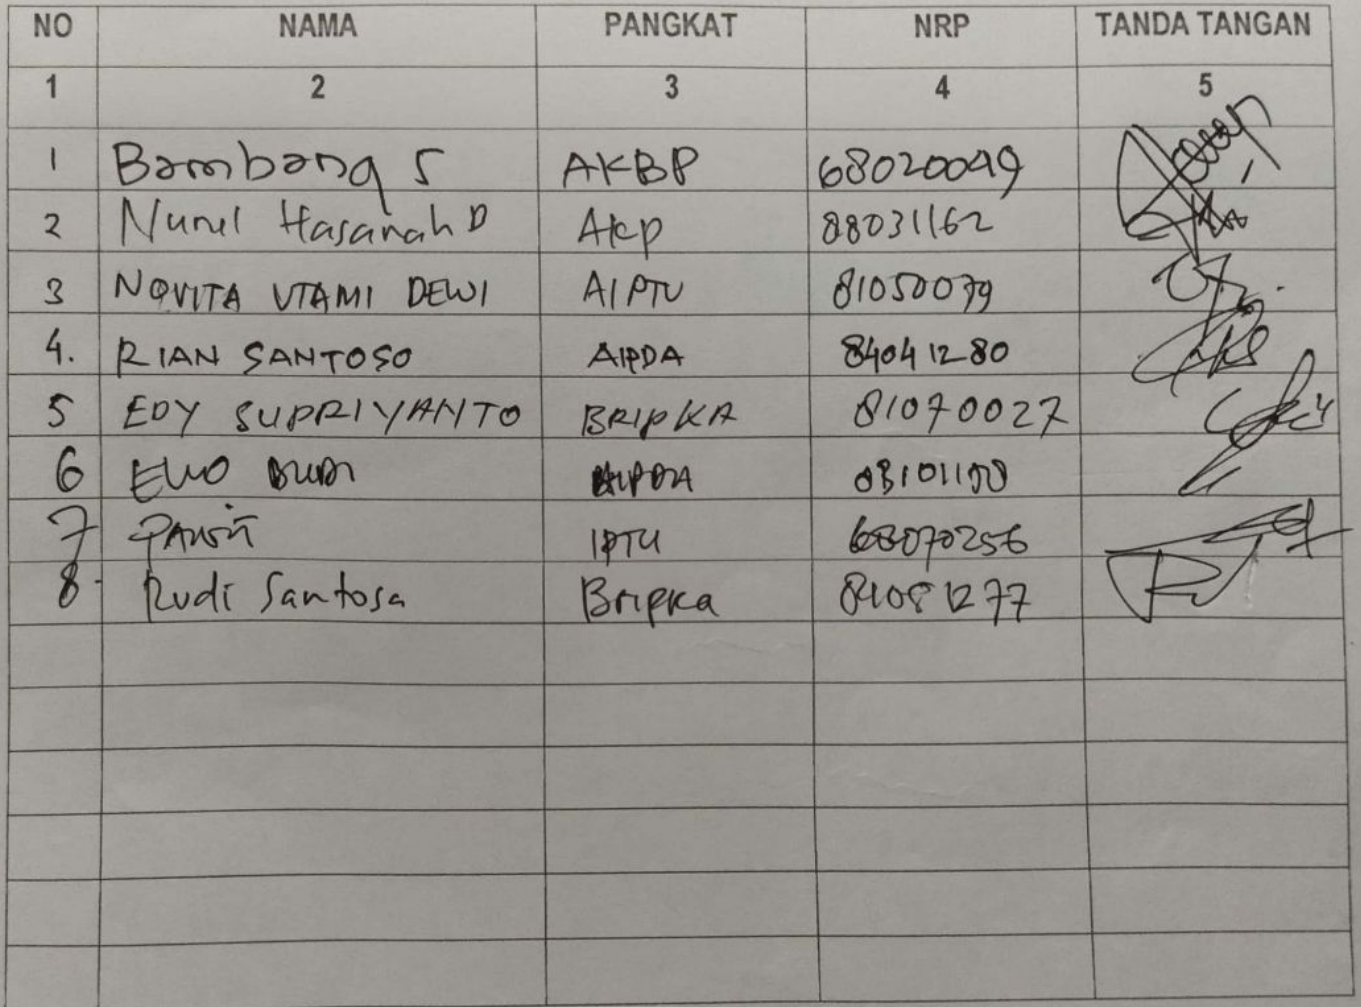 NO NAMA PANGKAT NRP TANDA TANGAN
1 2 3 4 5
1 Bambang S AKBP 68020049
2 Nurul Hasanah D AKP 88031162
3 NOVITA UTAMI DEWI AIPTU 81050079
4. RIAN SANTOSO AIPDA 84041280
5 EDY SUPRIYANTO BRIPKA 81070027
6 BUDI AIPDA
7 IPTU 68070256
8 Rudi Santosa Bripka 84081277